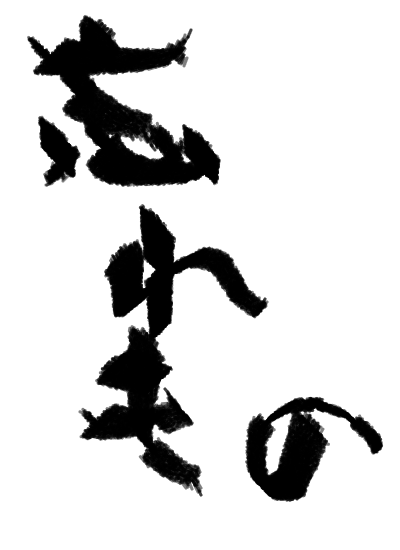 忘れもの